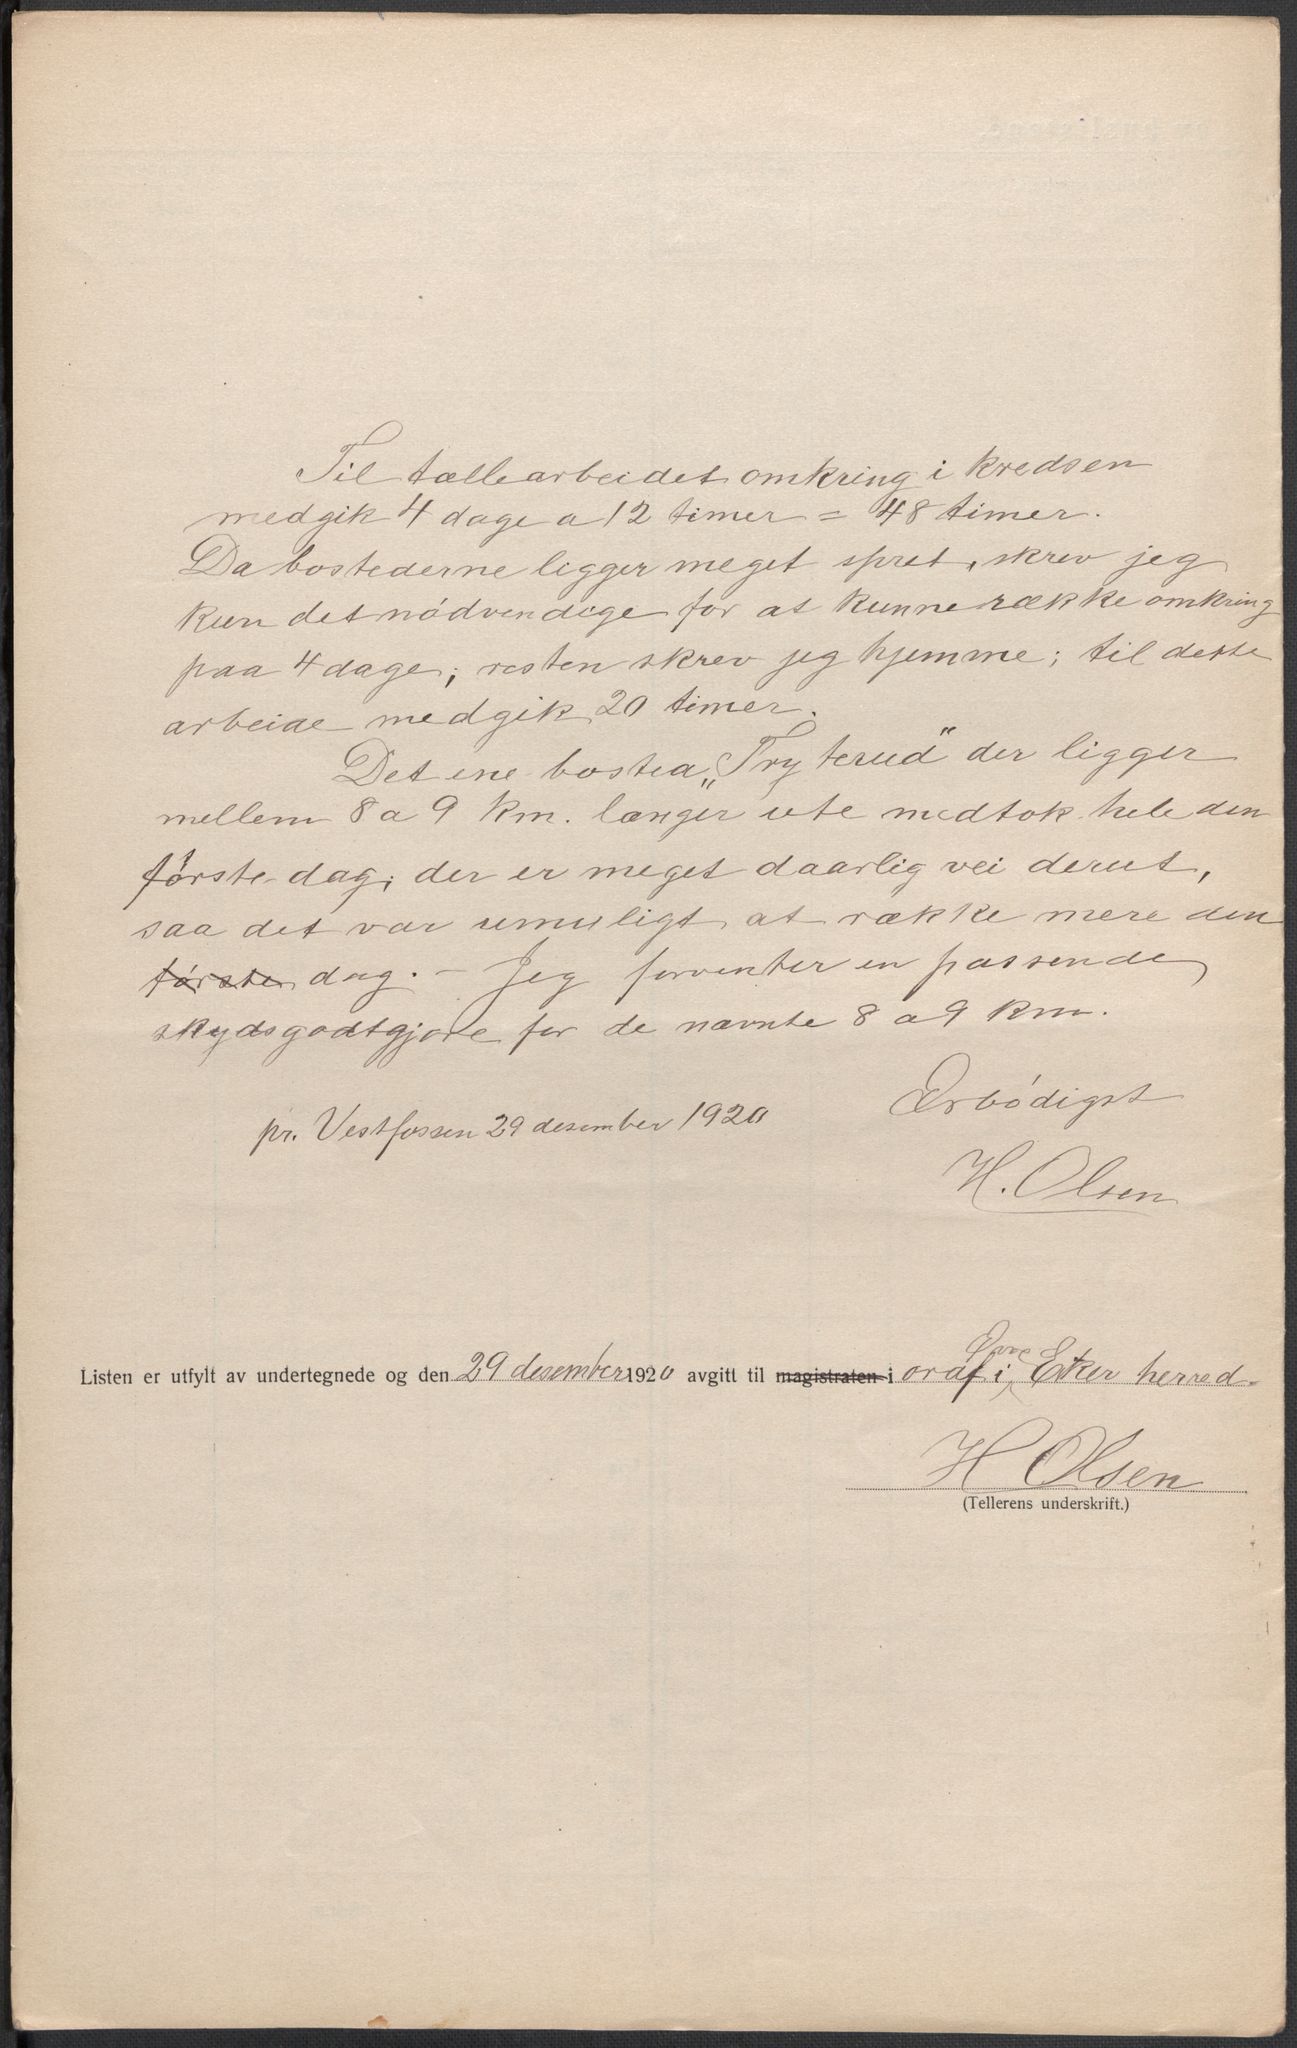 Til tællearbeidet omkring i kredsen
medgik 4 dage a 12 timer = 48 timer.
Da bostederne ligger meget spret, skrev jeg
kun det nödvendige for at kunne række omkring
paa 4 dage; resten skrev jeg hjemme; til dette
arbeide medgik 20 timer.
Det ene bosted „Tryterud" der ligger
mellem 8 a 9 km. længer ute medtok hele den
første dag; der er meget daarlig vei derut,
saa det var umuligt at række mere den
første dag. – Jeg forventer en passende
skydsgodtgjøre for de nævnte 8 a 9 km.
Ærbödigst
pr. Vestfossen 29 desember 1920
H. Olsen
Listen er utfylt av undertegnede og den 29 desember 1920 avgitt til magistraten i oraf i Øvre Eker herred.
H Olsen
(Tellerens underskrift.)